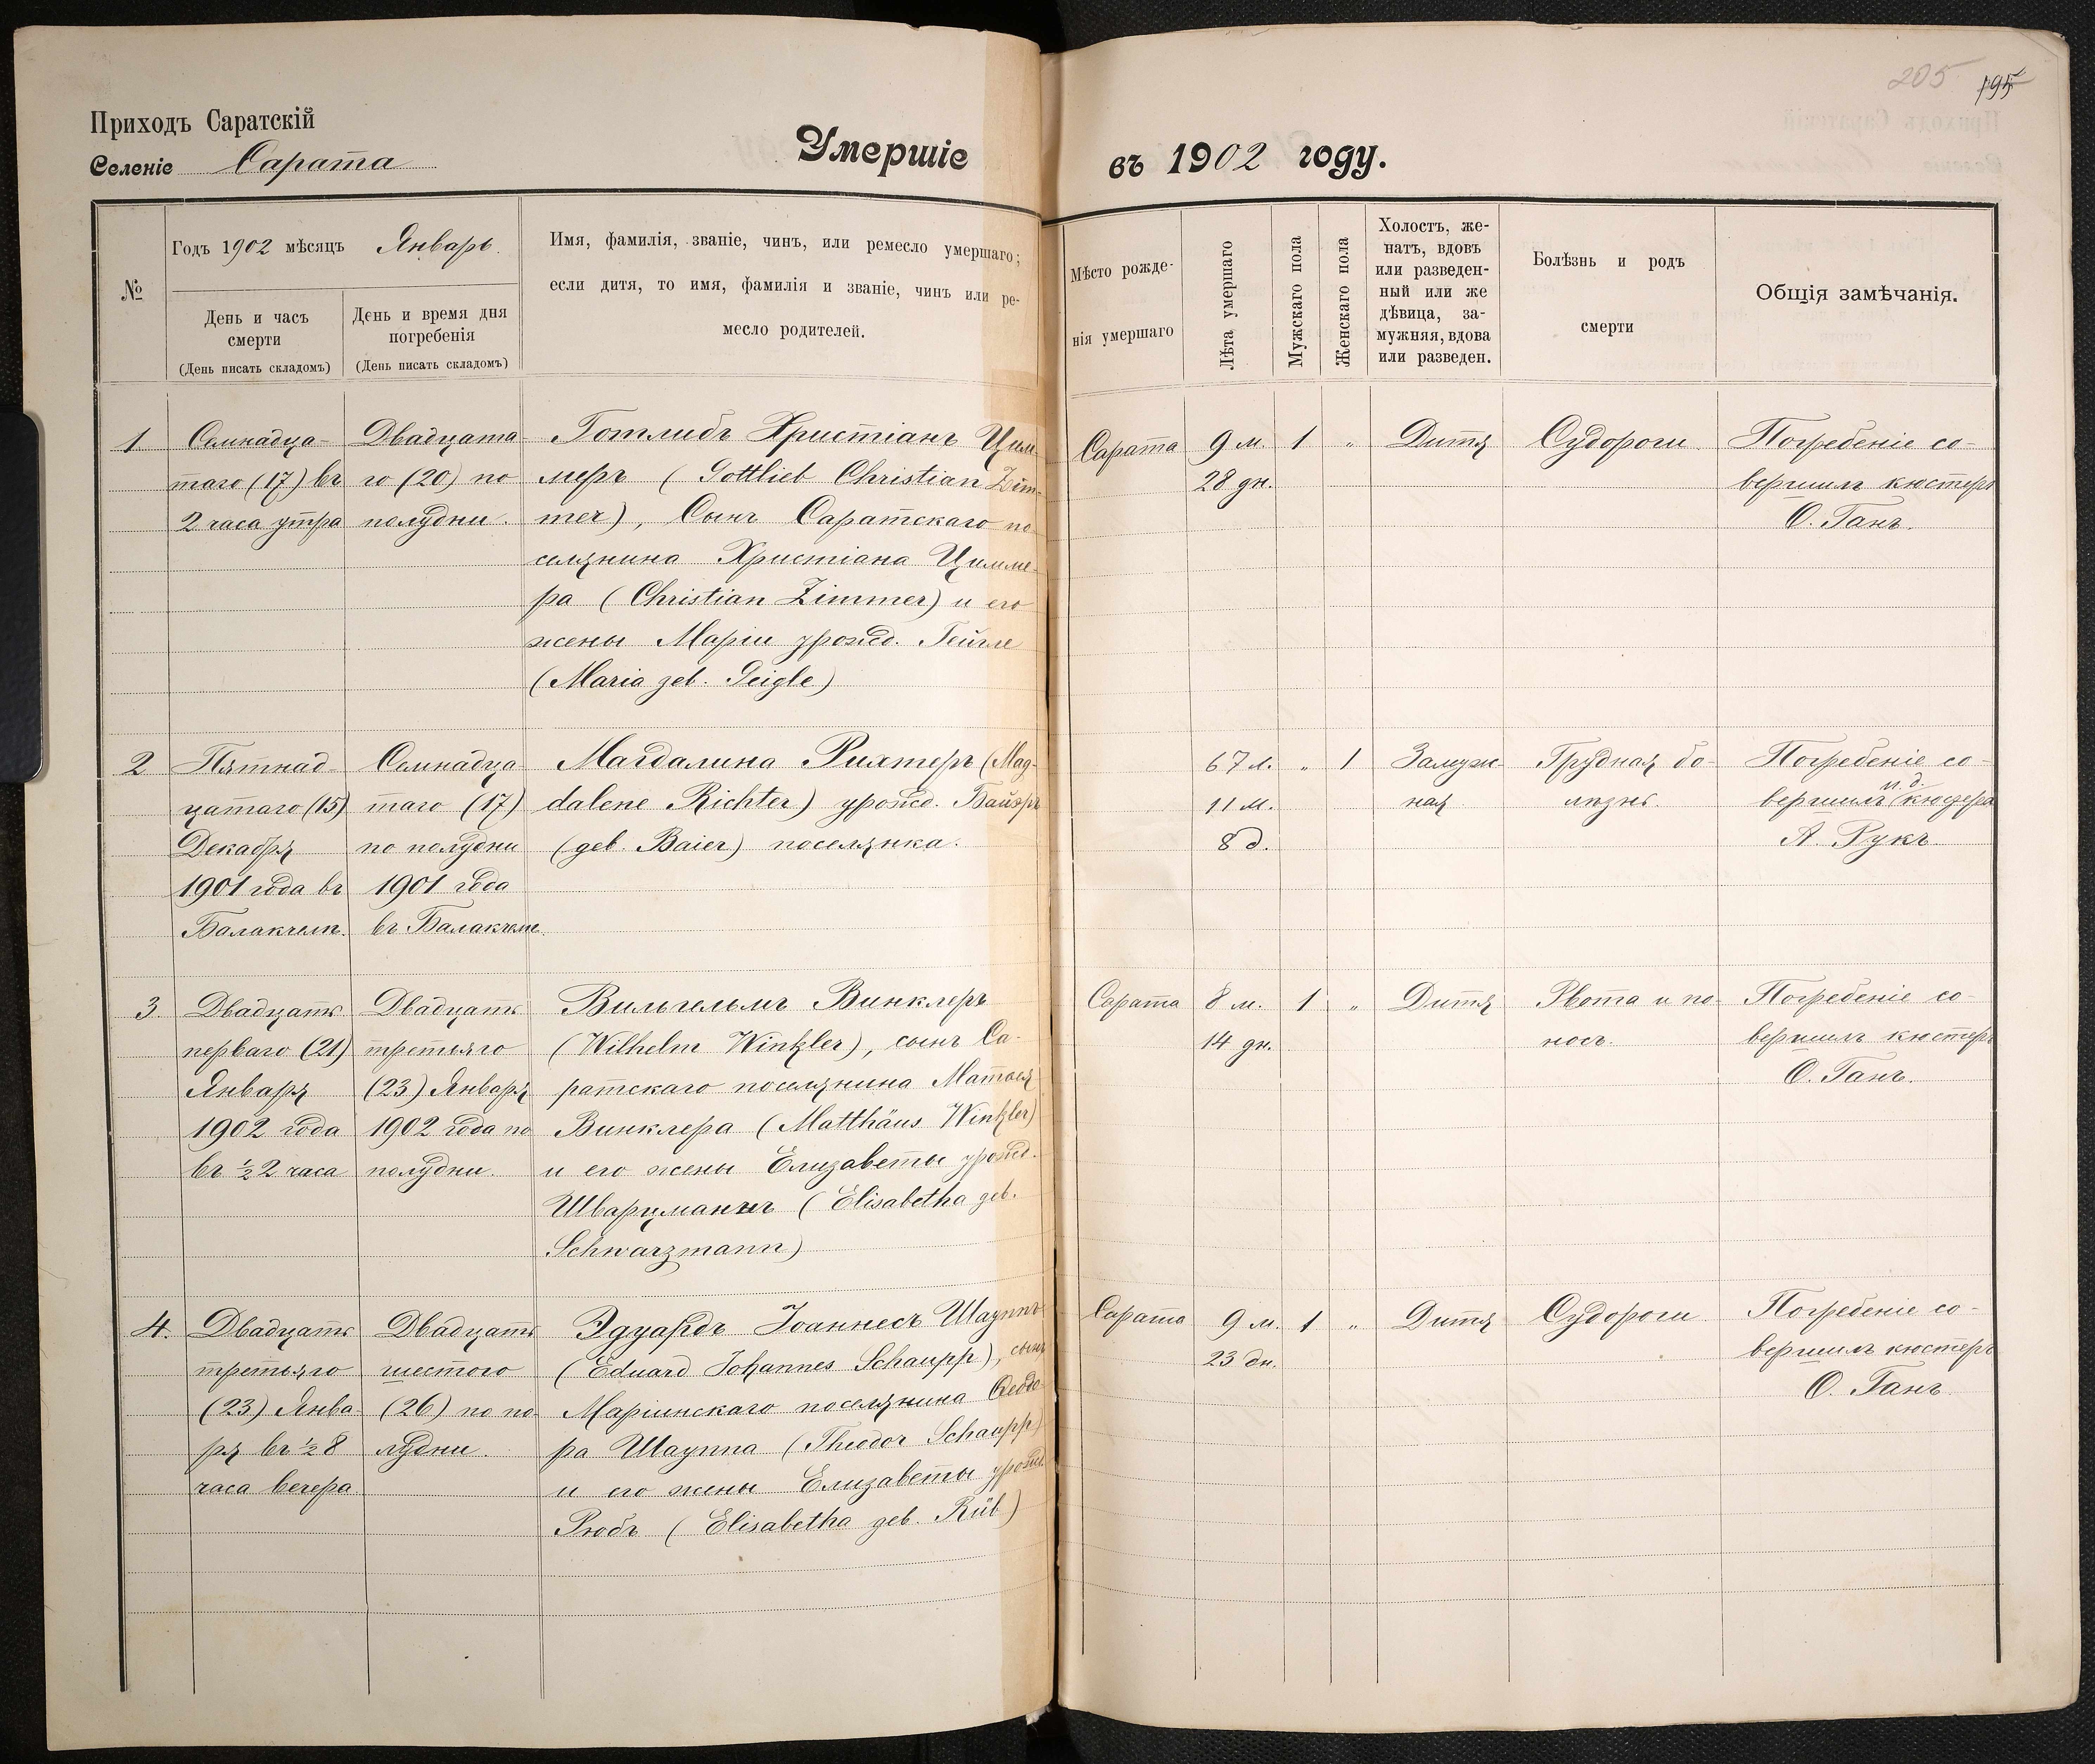 205 195
Приходъ Саратскій
Селеніе Сарата
Умершіе въ 1902 году.
№
Годъ 1902 мѣсяцъ Январь.
День и часъ
смерти
(День писать складомъ)
День и время дня
погребенія
(День писать складомъ)
Имя, фамилія, званіе, чинъ, или ремесло умершаго;
если дитя, то имя, фамилія и званіе, чинъ или ре-
месло родителей.
Мѣсто рожде-
нія умершаго
Лѣта умершаго
Мужскаго пола
Женскаго пола
Холостъ, же-
натъ, вдовъ
или разведен-
ный или же
дѣвица, за-
мужняя, вдова
или разведен.
Болѣзнь и родъ
смерти
Общія замѣчанія.
1
Семнадца-
таго (17) въ
2 часа утра
Двадцата-
го (20) по
полудни.
Готлибъ Христіанъ Цим-
меръ (Gottlieb Christian Zim-
mer), Сынъ Саратскаго по-
селянина Христіана Цимме-
ра (Christian Zimmer) и его
жены Маріи урожд. Гейгле
(Maria geb. Geigle)
Сарата
9 м.
28 дн.
1
"
Дитя
Судороги.
Погребеніе со-
вершилъ кюстеръ
О. Ганъ.
2
Пятнад-
цатаго (15)
Декабря
1901 года въ
Балакчели.
Семнадца-
таго (17)
по полудни
1901 года
въ Балакчели.
Магдалина Рихтеръ (Mag-
dalene Richter) урожд. Байэръ
(geb. Baier) поселянка.
67 л.
11 м.
8 д.
"
1
Замуж-
ная
Грудная бо-
лѣзнь.
Погребеніе со-
и. д.
вершилъ кюстера
А. Рукъ.
3.
Двадцать
перваго (21)
Января
1902 года
въ ½ 2 часа
Двадцать
третьяго
(23) Января
1902 года по
полудни.
Вильгельмъ Винклеръ
(Wilhelm Winkler), сынъ Са-
ратскаго поселянина Матѳея
Винклера (Matthäus Winkler)
и его жены Елизаветы урожд.
Шварцманнъ (Elisabetha geb.
Schwarzmann)
Сарата
8 м.
14 дн.
1
"
Дитя
Рвота и по-
носъ.
Погребеніе со-
вершилъ кюстеръ
О. Ганъ.
4.
Двадцать
третьяго
(23) Янва-
ря въ ½ 8
часа вечера
Двадцать
шестого
(26) по по-
лудни.
Эдуардъ Іоаннесъ Шауппъ
(Eduard Johannes Schaupp), сынъ
Маріинскаго поселянина Ѳеодо-
ра Шауппа (Theodor Schaupp)
и его жены Елизаветы урожд.
Рюбъ (Elisabetha geb. Rüb)
Сарата
9 м.
23 дн.
1
"
Дитя
Судороги.
Погребеніе со-
вершилъ кюстеръ
О. Ганъ.